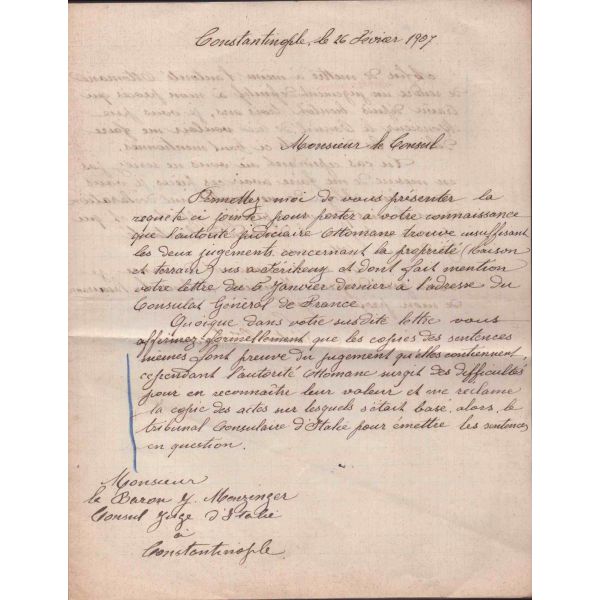 Constantinople, le 26 Février 1907
Monsieur le Consul
Permettez moi de vous présenter la
requête ci jointe pour porter à votre connaissance
que l'autorité judiciaire Ottomane trouve insuffisant
les deux jugements concernant la propriété (Maison
et terrain) sis a Férikeuy et dont fait mention
votre lettre des Janvier dernier à l'adresse du
Consulat Général de France.
Quoique dans votre susdite lettre vous
affirmez formellement que les copies des sentences
mêmes font preuve du jugement qu'elles contiennent,
cependant l'autorité Ottomane surgit des difficultés
pour en reconnaître leur valeur et me reclame
la copie des actes sur lesquels s'était basé, alors, le
tribunal Consulaire d'Italie pour émettre les sentences
en question.
Monsieur
le Baron J. Monzinger
Consul Juge d'Italie
à
Constantinople.